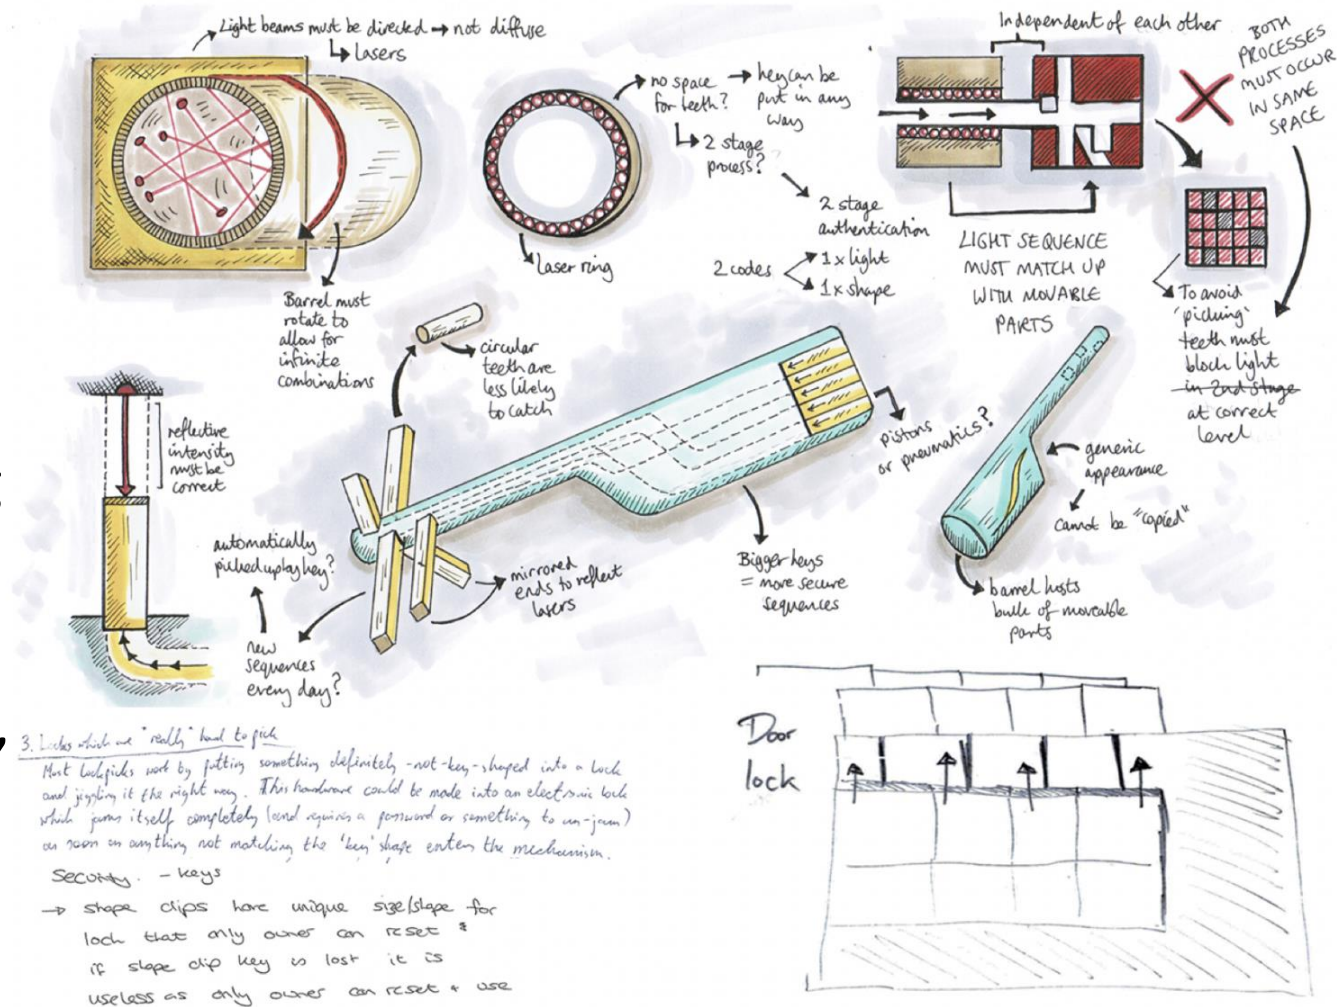 Light beams must be directed → not diffuse
↳ lasers
Barrel must
rotate to
allow for
infinite
combinations
laser ring
no space
for teeth?
→ key can be
put in any
way
↳ 2 stage
process?
2 stage
authentication
2 codes
1 x light
1 x shape
Independent of each other
LIGHT SEQUENCE
MUST MATCH UP
WITH MOVABLE
PARTS
BOTH
PROCESSES
MUST OCCUR
IN SAME
SPACE
To avoid
'picking'
teeth must
block light
in 2nd stage
at correct
level
reflective
intensity
must be
correct
circular
teeth are
less likely
to catch
automatically
picked up by key?
new
sequences
every day?
mirrored
ends to reflect
lasers
Bigger keys
= more secure
sequences
pistons
or pneumatics?
generic
appearance
cannot be "copied"
barrel hosts
bulk of moveable
parts
3. Locks which are "really" hard to pick
Most lockpicks work by putting something definitely-not-key-shaped into a lock
and jiggling it the right way. This hardware could be made into an electronic lock
which jams itself completely (and requires a password or something to un-jam)
as soon as anything not matching the 'key' shape enters the mechanism.
Security. - keys
→ shape clips have unique size/shape for
lock that only owner can reset &
if shape clip key is lost it is
useless as only owner can reset + use
Door
lock